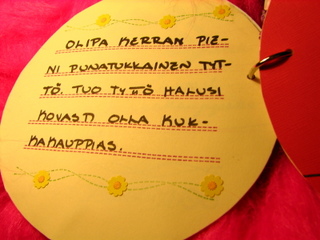 OLIPA KERRAN PIE-
NI PUNATUKKAINEN TYT-
TÖ. TUO TYTTÖ HALUSI
KOVASTI OLLA KUK-
KAKAUPPIAS.